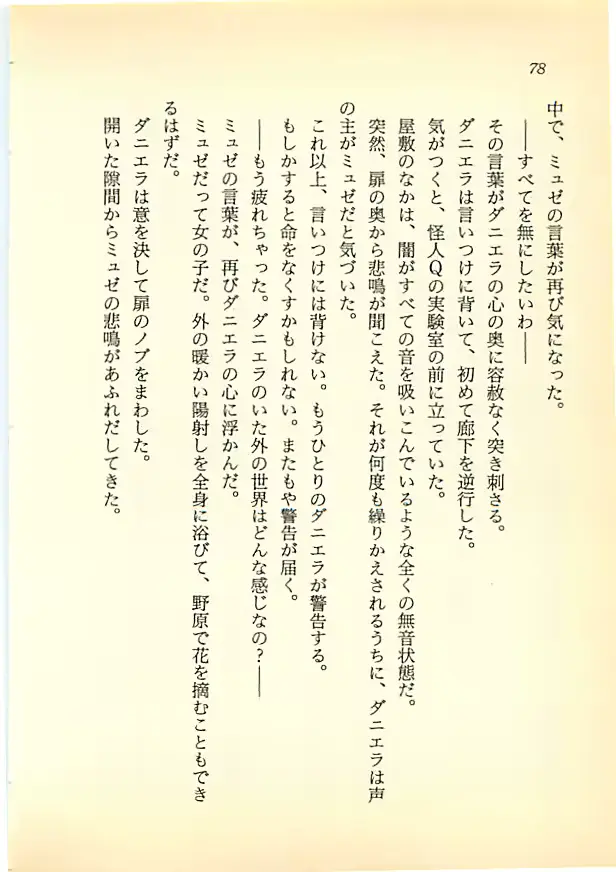 78
中で、ミュゼの言葉が再び気になった。
――すべてを無にしたいわ――
その言葉がダニエラの心の奥に容赦なく突き刺さる。
ダニエラは言いつけに背いて、初めて廊下を逆行した。
気がつくと、怪人Qの実験室の前に立っていた。
屋敷のなかは、闇がすべての音を吸いこんでいるような全くの無音状態だ。
突然、扉の奥から悲鳴が聞こえた。それが何度も繰りかえされるうちに、ダニエラは声
の主がミュゼだと気づいた。
これ以上、言いつけには背けない。もうひとりのダニエラが警告する。
もしかすると命をなくすかもしれない。またもや警告が届く。
――もう疲れちゃった。ダニエラのいた外の世界はどんな感じなの?――
ミュゼの言葉が、再びダニエラの心に浮かんだ。
ミュゼだって女の子だ。外の暖かい陽射しを全身に浴びて、野原で花を摘むこともでき
るはずだ。
ダニエラは意を決して扉のノブをまわした。
開いた隙間からミュゼの悲鳴があふれだしてきた。